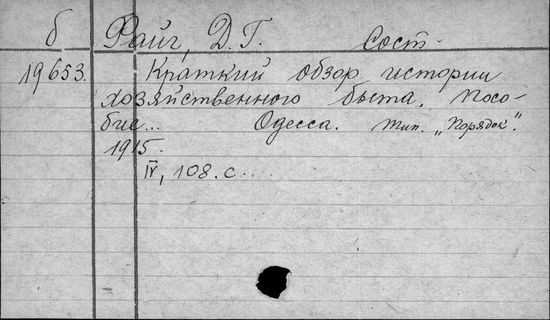 б Файг, Д. Г. Сост.
19653. Краткий обзор истории
хозяйственного быта. Посо-
бие... Одесса. Тип. „Порядок".
1915.
IV, 108. с.